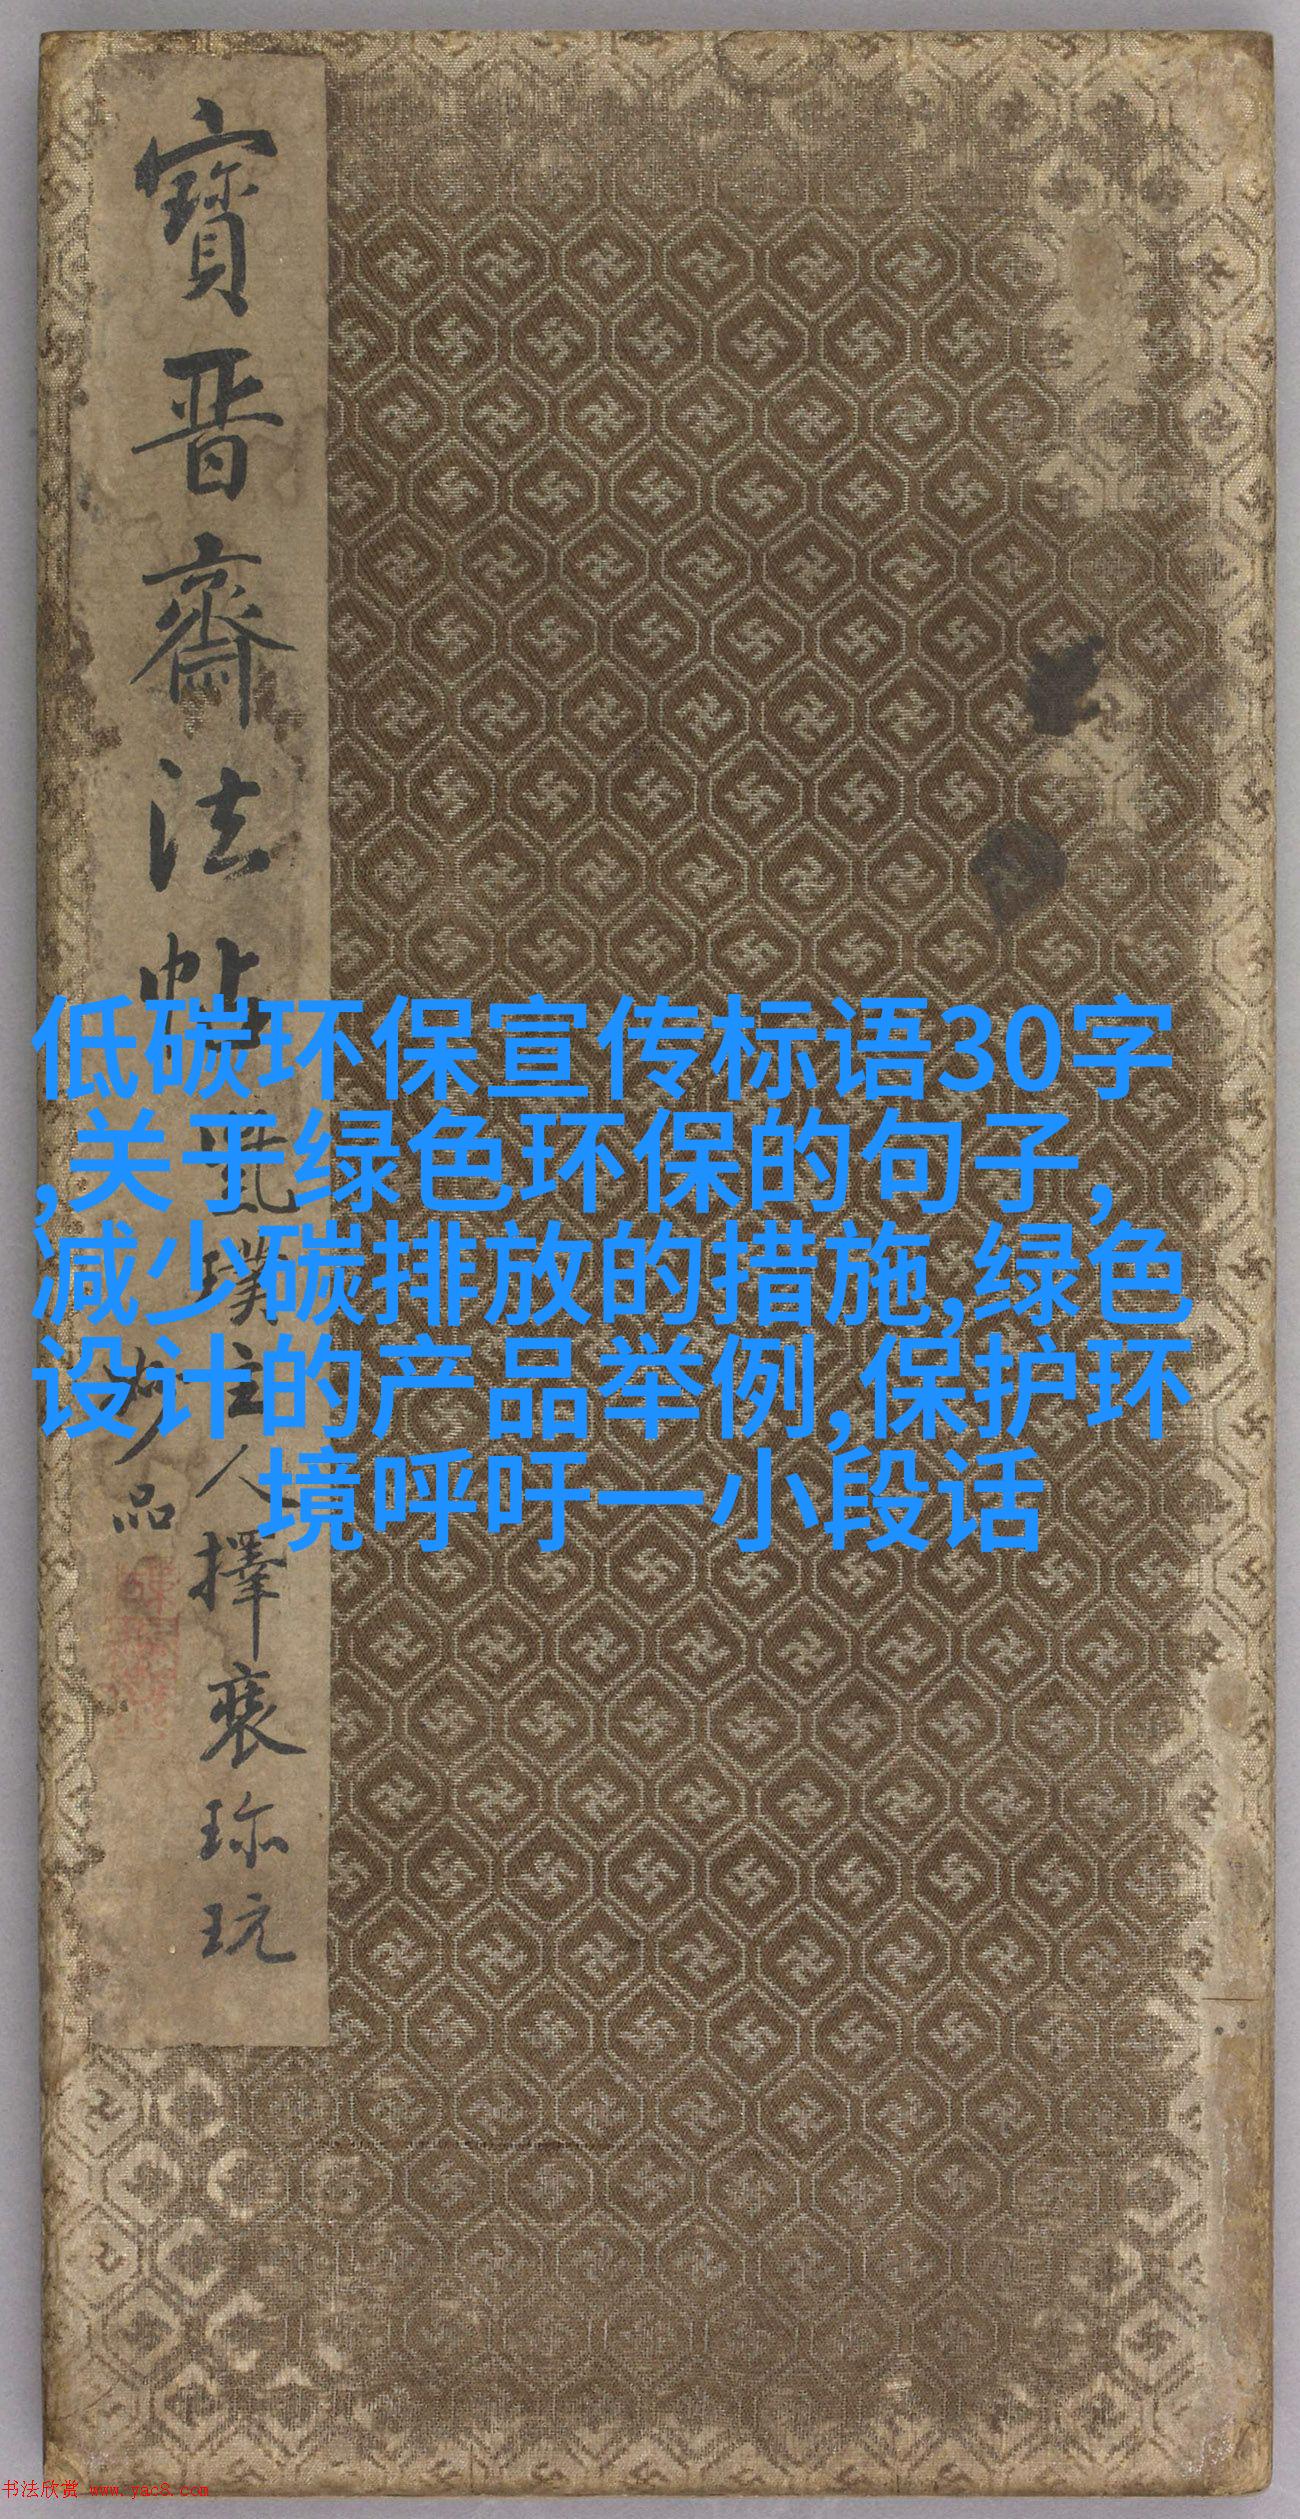 寶晉齋法帖
主人擇裘珎玩
妙品
低碳环保宣传标语30字
,关于绿色环保的句子,
减少碳排放的措施,绿色
设计的产品举例,保护环
境呼吁一小段话
书法欣赏 www.yac8.com